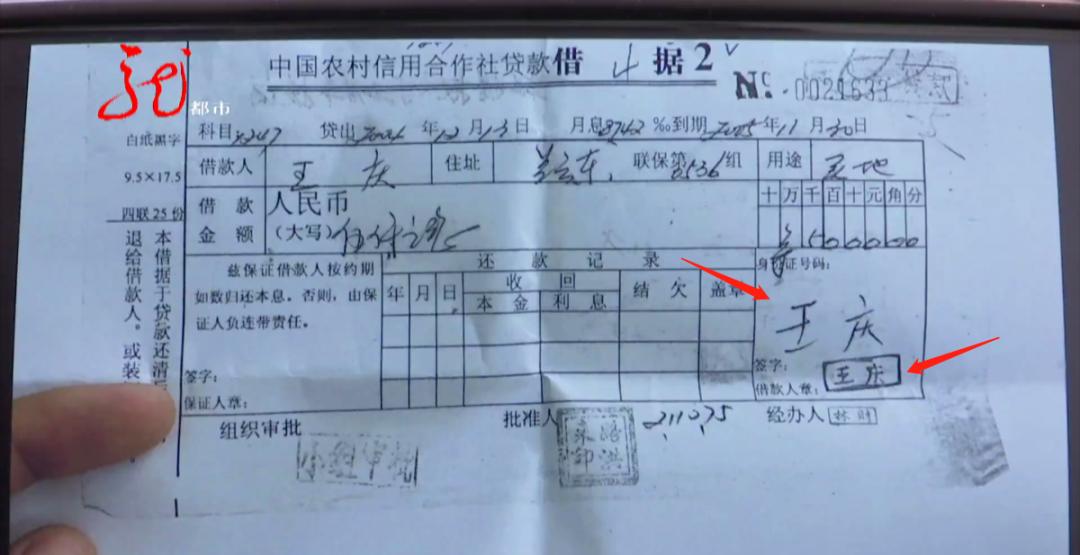 中国农村信用合作社贷款借据2
№ 0021633
都市
白纸黑字
9.5×17.5
四联25份
本借据于贷款还清后
退给借款人。或装
科目 贷出2004年12月13日 月息8742‰到期2005年11月30日
借款人 王庆 住址 联保第8536组 用途
借款金额 人民币(大写)
十万千百十元角分
500000
兹保证借款人按约期
如数归还本息。否则，由保
证人负连带责任。
签字：
保证人章：
还款记录
年 月 日 收回 结欠 盖章
本金 利息
身份证号码：
王庆
签字：
借款人章： 王庆
组织审批 批准人 211075 经办人